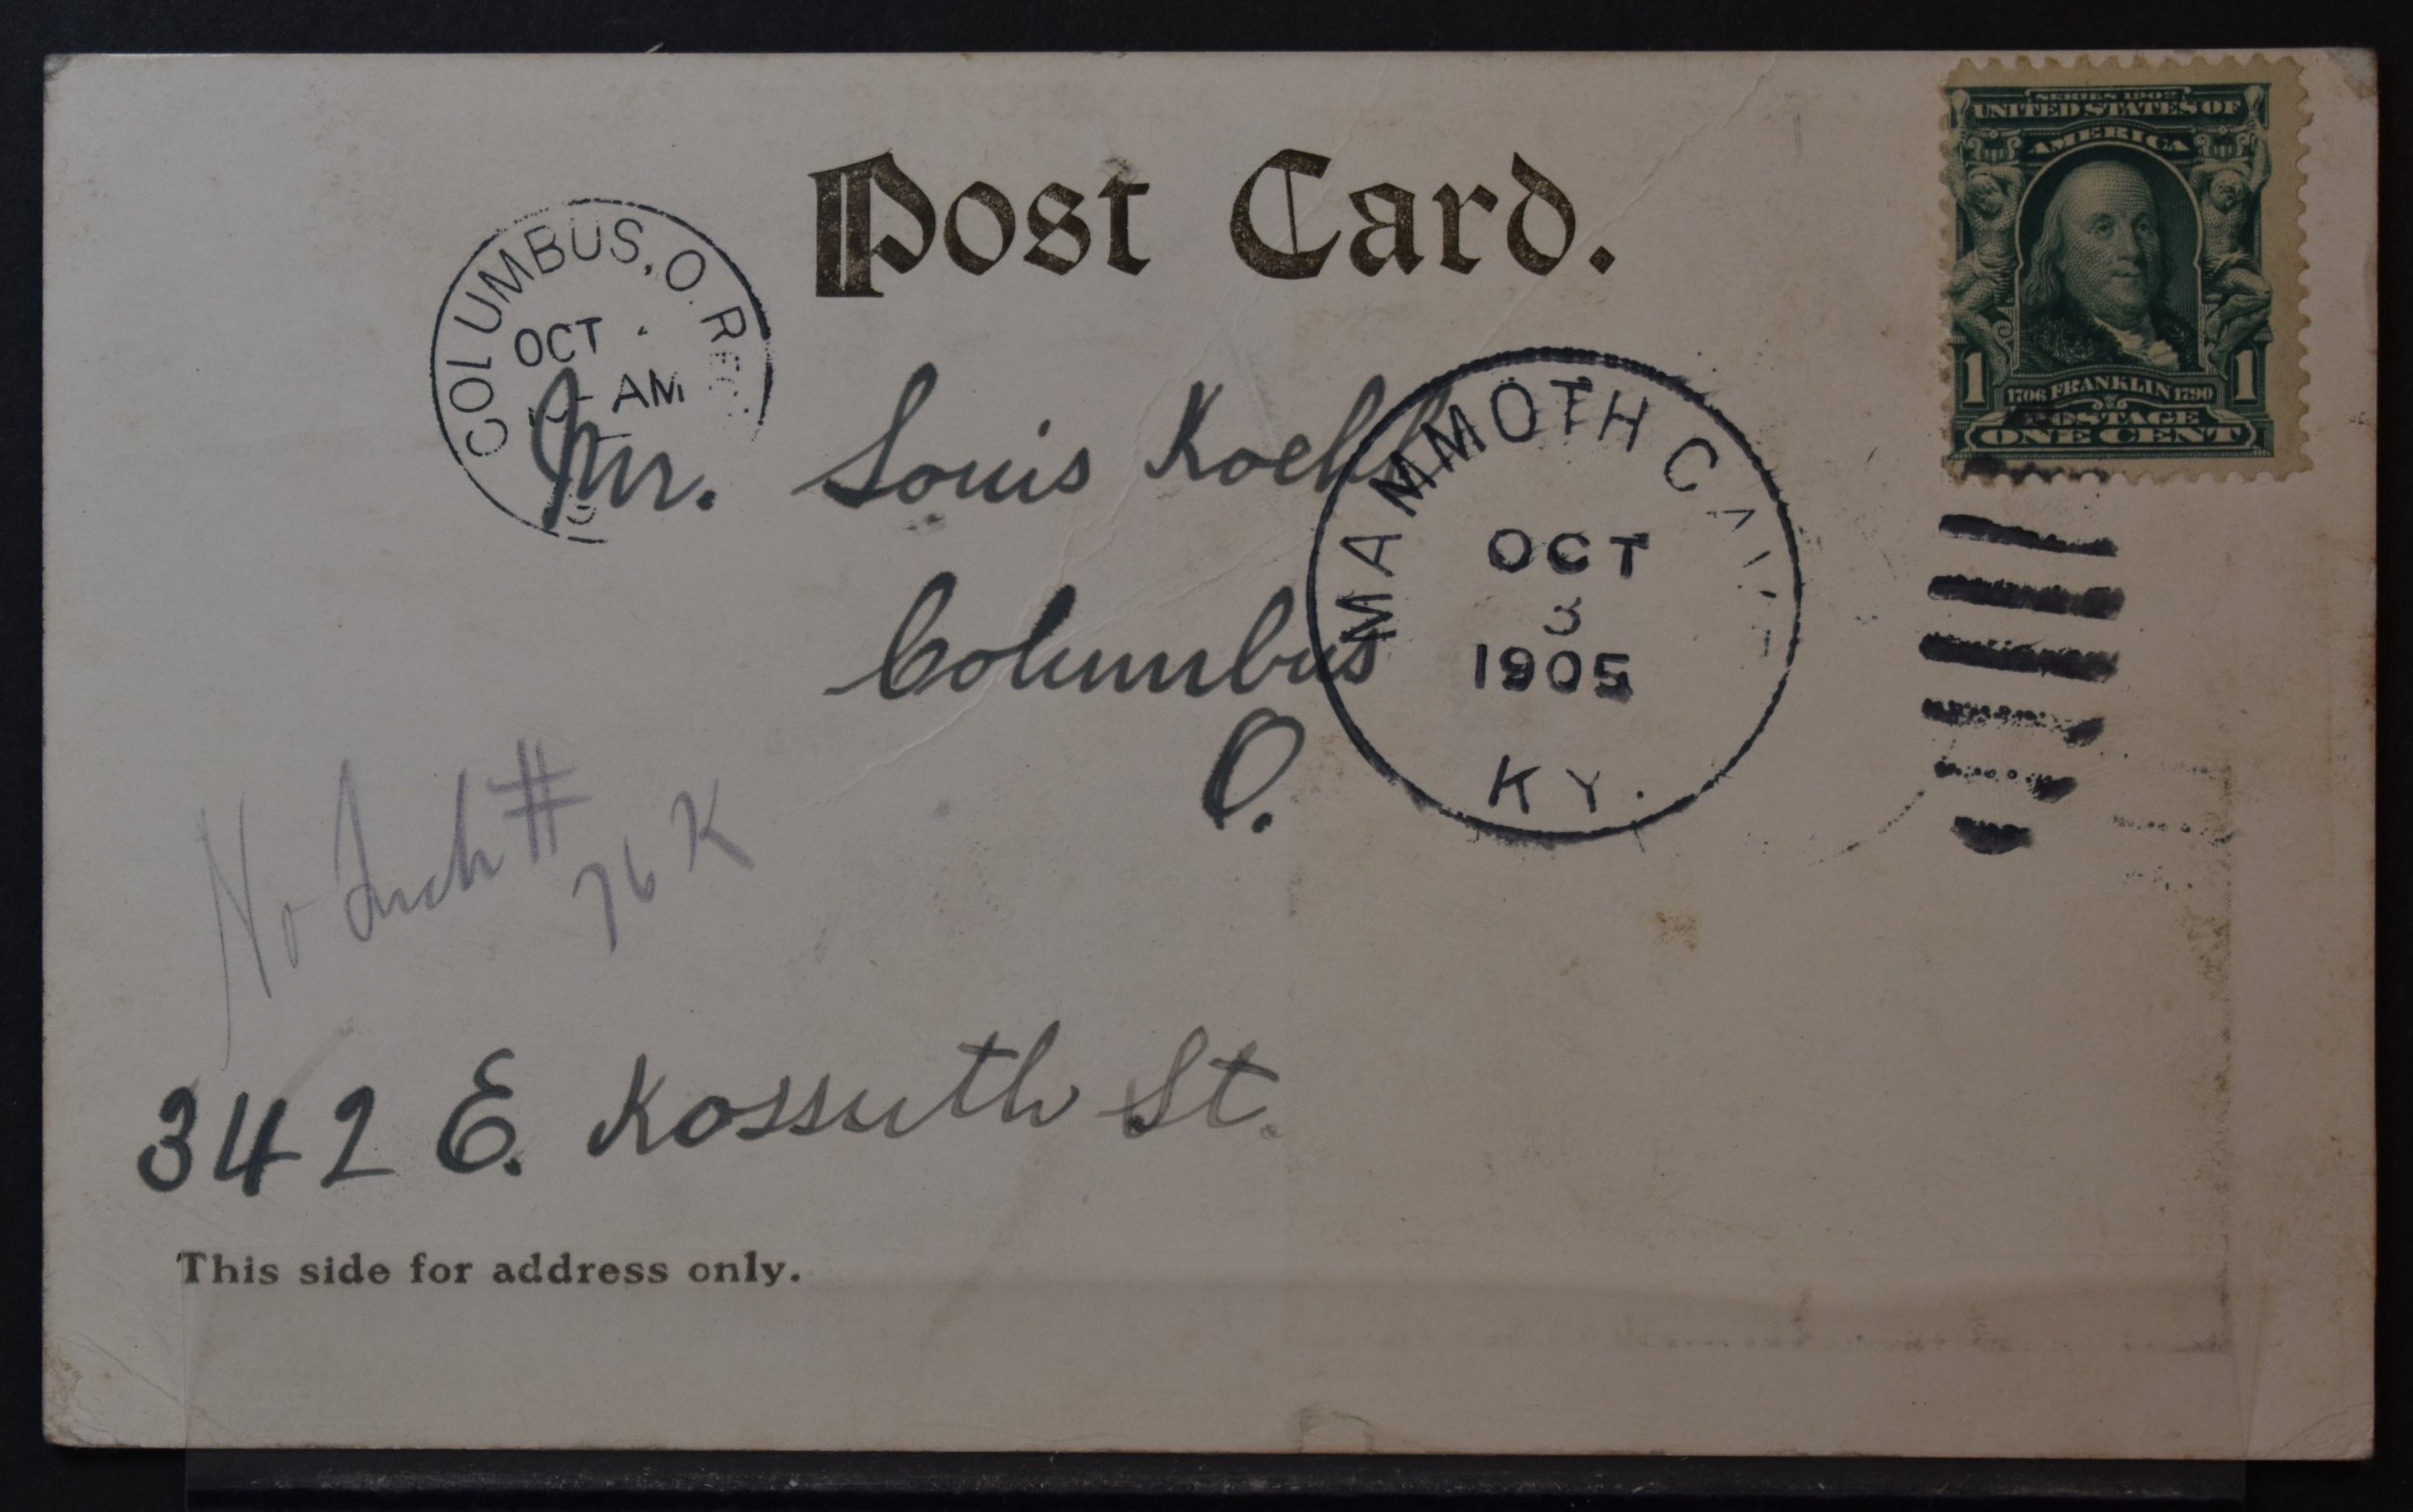 SERIES 1902
UNITED STATES OF
AMERICA
1706 FRANKLIN 1790
1 1
POSTAGE
ONE CENT
Post Card.
COLUMBUS, O. REC'
OCT
AM
MAMMOTH CAVE
OCT
3
1905
KY.
Mr. Louis
Columbus
O.
No Such #
76 K
342 E. Kossuth St.
This side for address only.